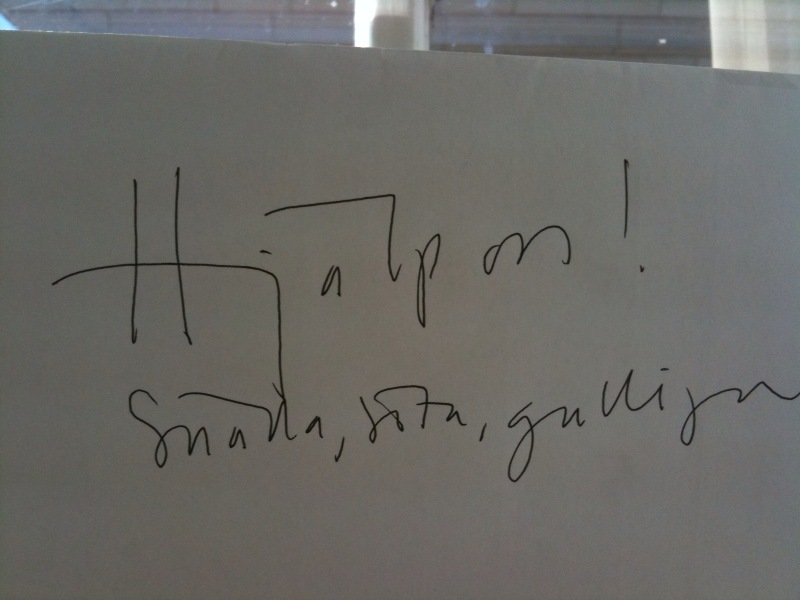 Hjälp oss!
Snälla, söta, gulliga